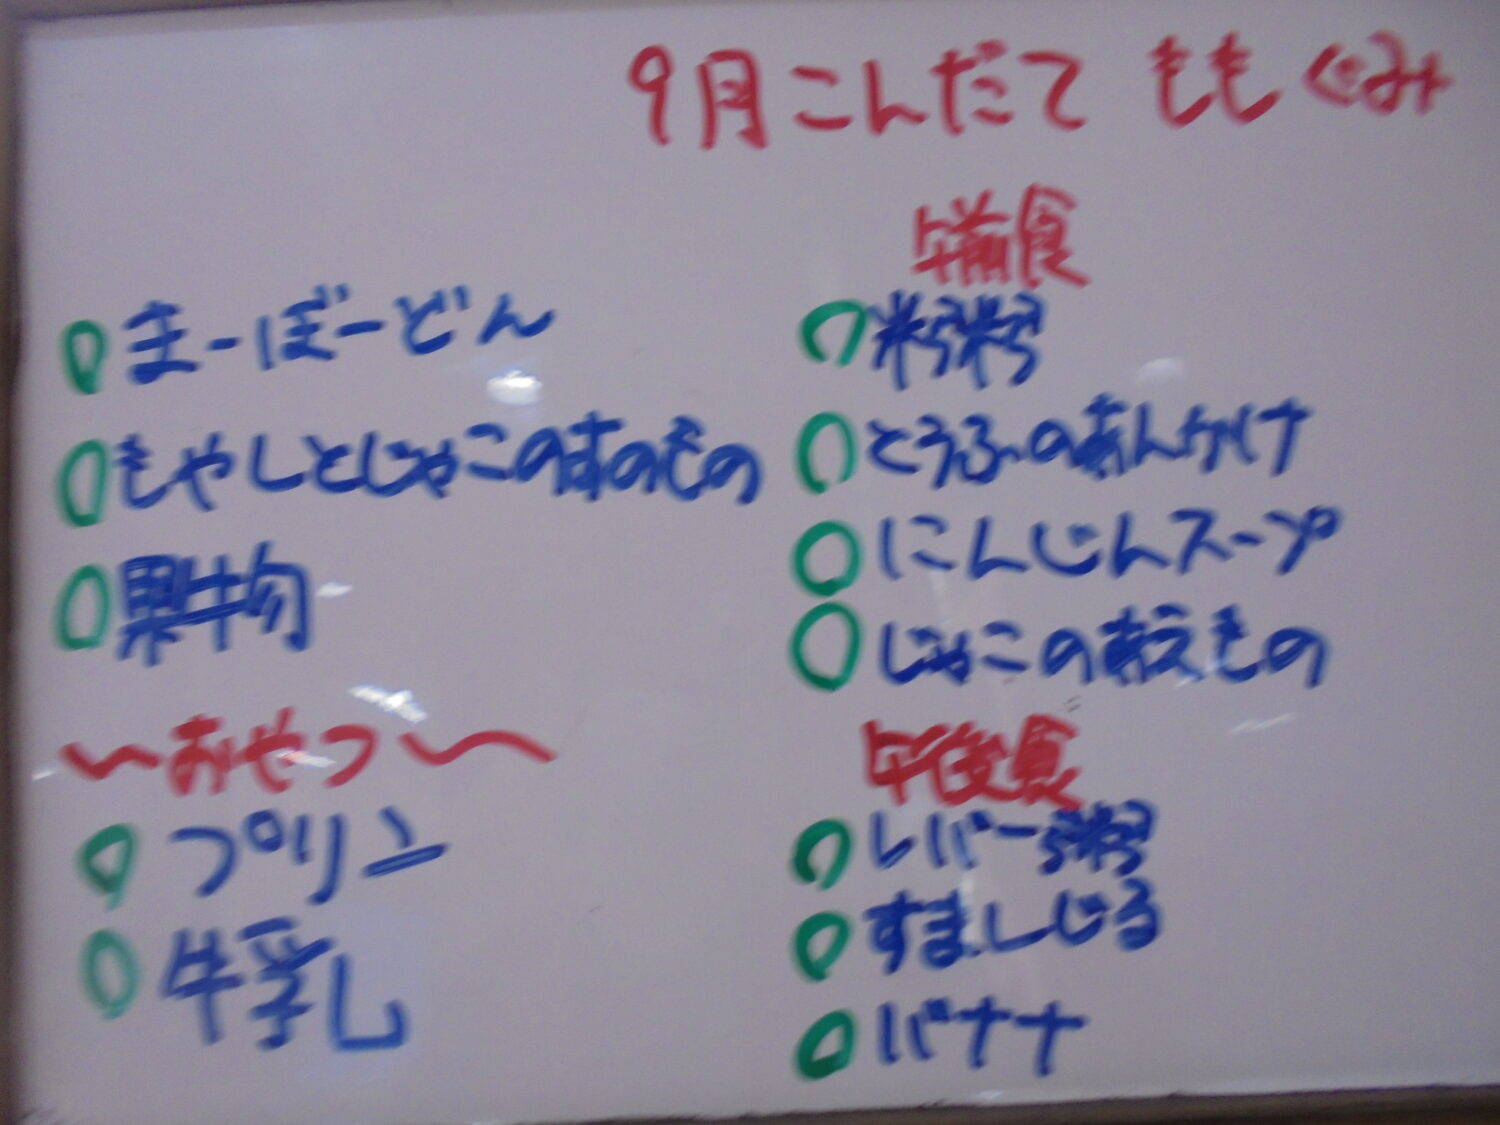 9月こんだて ももぐみ
まーぼーどん
もやしとじゃこのすのもの
果物
〜おやつ〜
プリン
牛乳
午前食
とうふのあんかけ
にんじんスープ
じゃこのあえもの
午後食
レバー粥
すましじる
バナナ